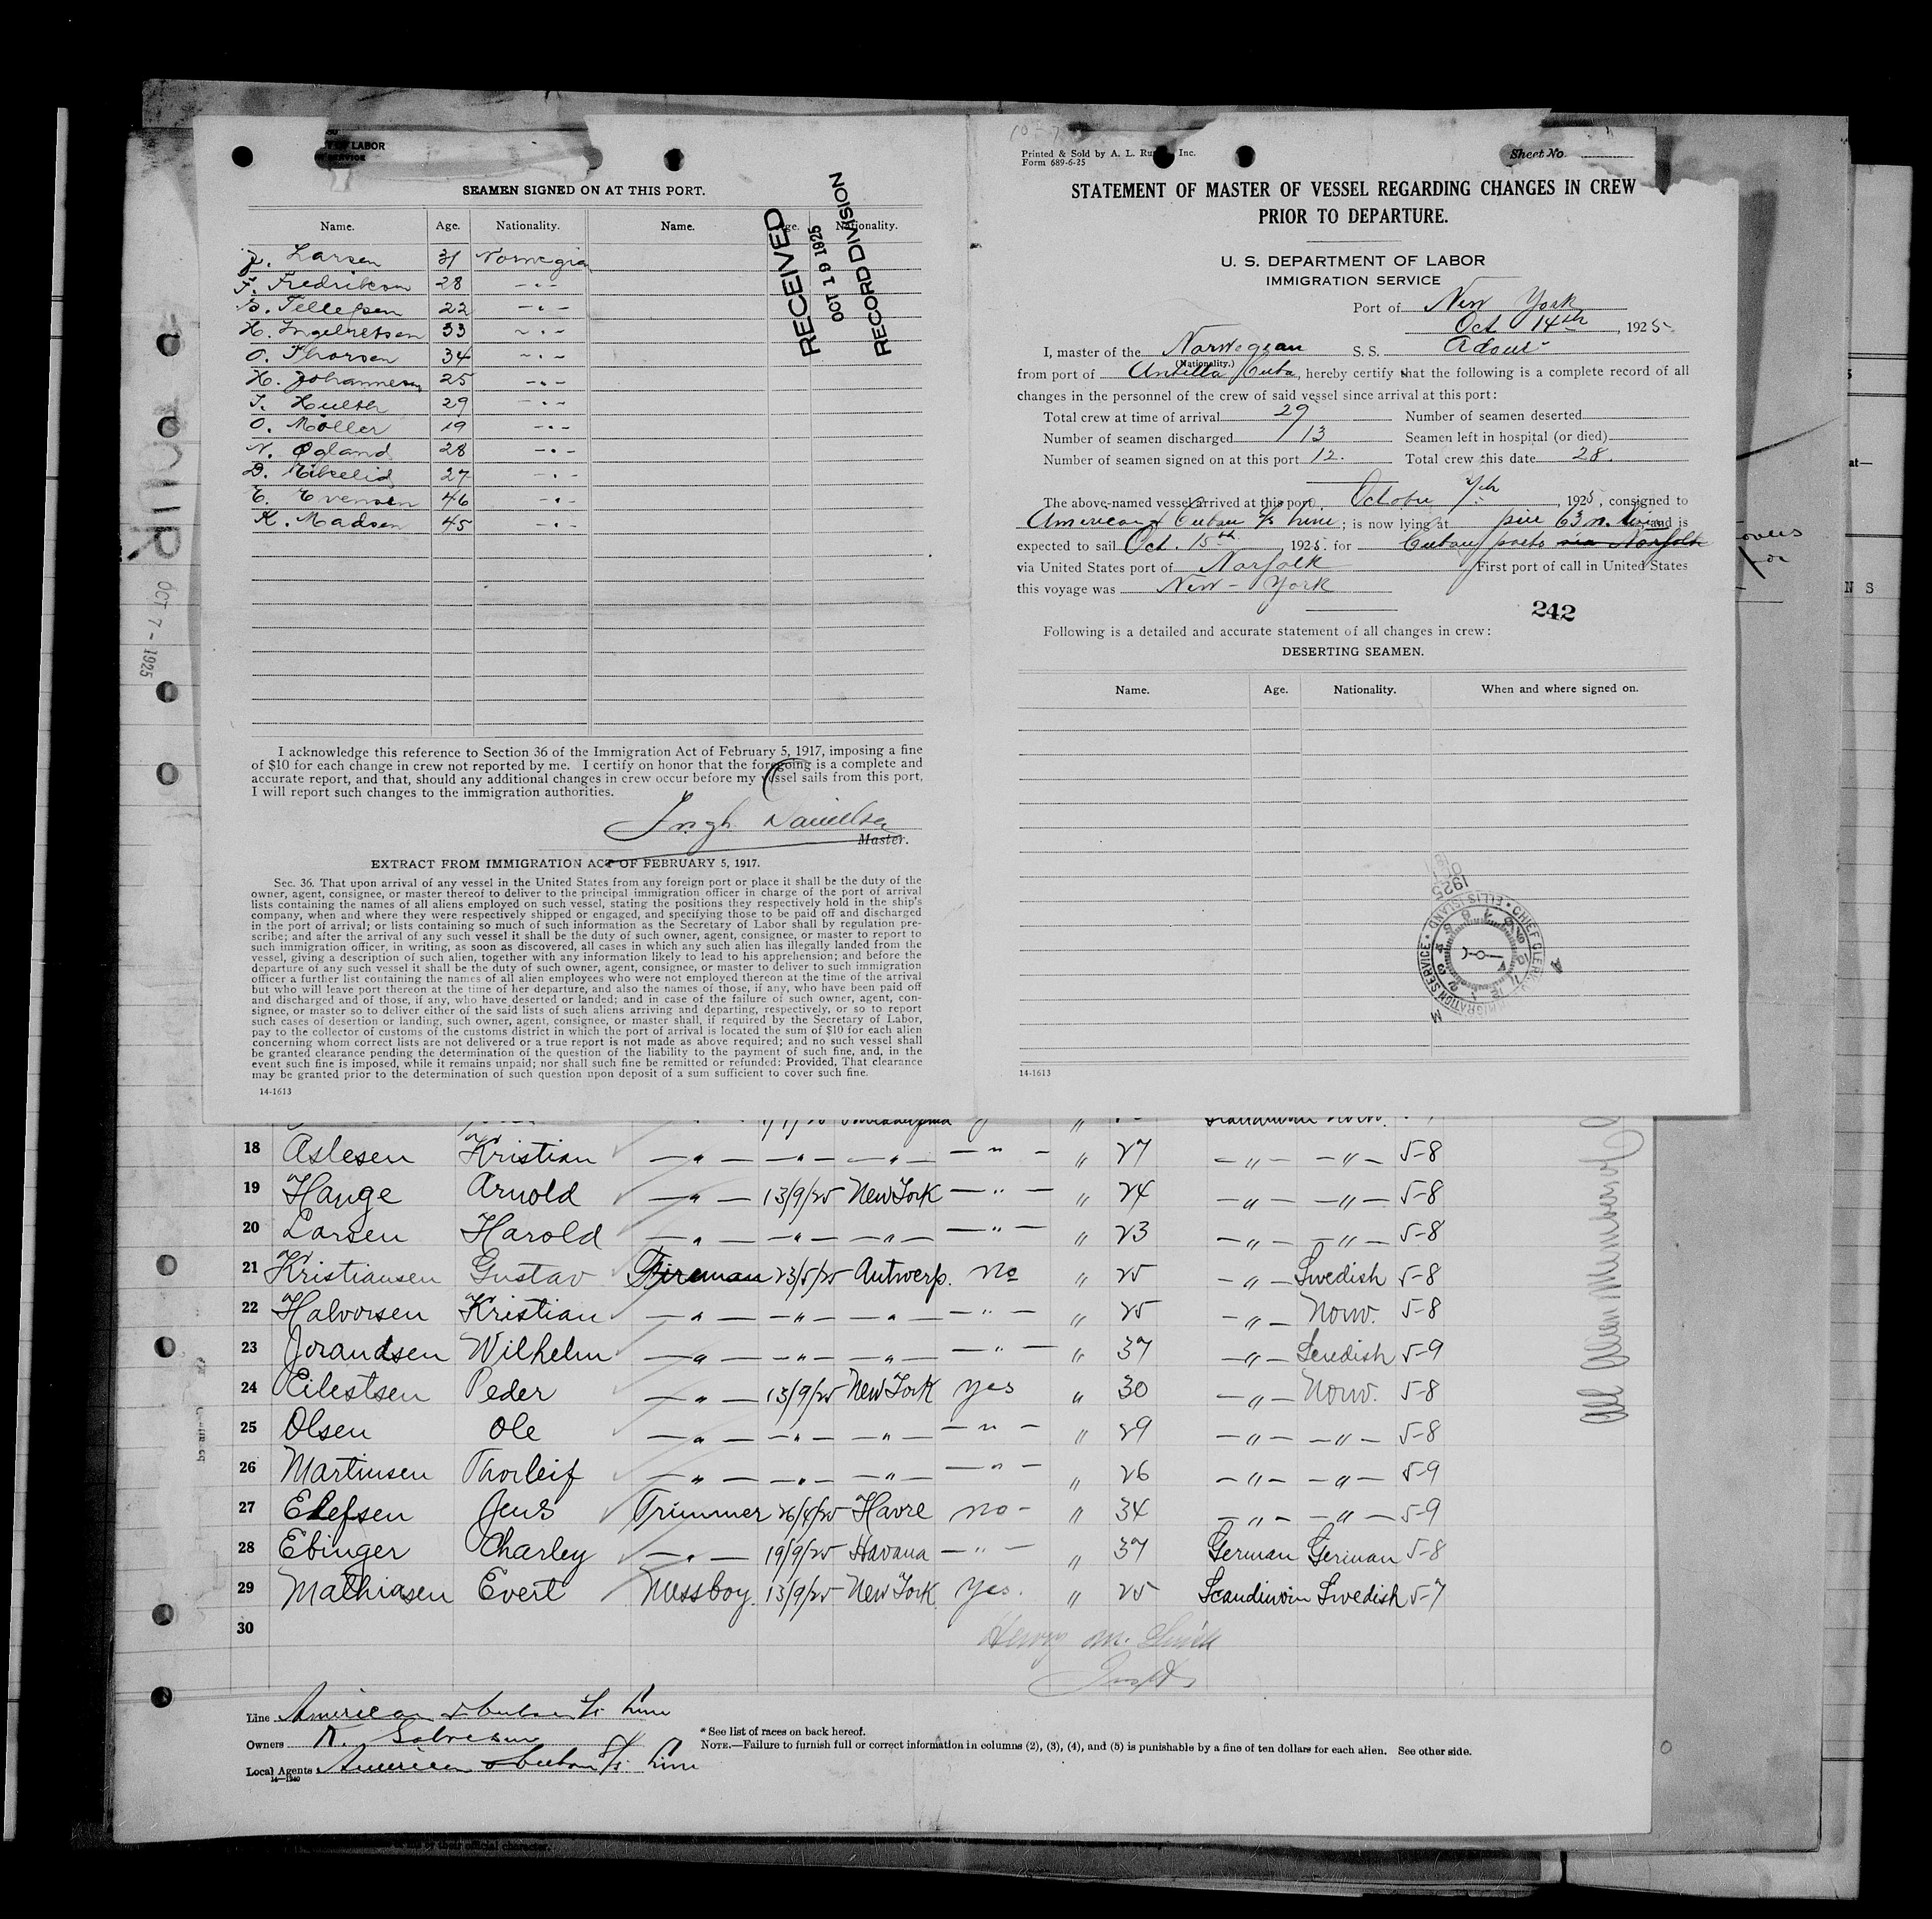 OF LABOR
SERVICE
SEAMEN SIGNED ON AT THIS PORT.
Name. Age. Nationality. Name. Age. Nationality.
Larsen 31 Norwegian
F. Fredrikson 28 -"-
B. Tellefsen 22 -"-
H. Ingebretsen 33 -"-
O. Thorsen 34 -"-
H. Johannesen 25 -"-
T. Hulth 29 -"-
O. Møller 19 -"-
N. Øgland 28 -"-
D. Mikelid 27 -"-
E. Evensen 46 -"-
K. Madsen 45 -"-
RECEIVED
OCT 19 1925
RECORD DIVISION
I acknowledge this reference to Section 36 of the Immigration Act of February 5, 1917, imposing a fine
of $10 for each change in crew not reported by me. I certify on honor that the foregoing is a complete and
accurate report, and that, should any additional changes in crew occur before my vessel sails from this port,
I will report such changes to the immigration authorities.
Danielsen
Master.
EXTRACT FROM IMMIGRATION ACT OF FEBRUARY 5, 1917.
Sec. 36. That upon arrival of any vessel in the United States from any foreign port or place it shall be the duty of the
owner, agent, consignee, or master thereof to deliver to the principal immigration officer in charge of the port of arrival
lists containing the names of all aliens employed on such vessel, stating the positions they respectively hold in the ship's
company, when and where they were respectively shipped or engaged, and specifying those to be paid off and discharged
in the port of arrival; or lists containing so much of such information as the Secretary of Labor shall by regulation pre-
scribe; and after the arrival of any such vessel it shall be the duty of such owner, agent, consignee, or master to report to
such immigration officer, in writing, as soon as discovered, all cases in which any such alien has illegally landed from the
vessel, giving a description of such alien, together with any information likely to lead to his apprehension; and before the
departure of any such vessel it shall be the duty of such owner, agent, consignee, or master to deliver to such immigration
officer a further list containing the names of all alien employees who were not employed thereon at the time of the arrival
but who will leave port thereon at the time of her departure, and also the names of those, if any, who have been paid off
and discharged and of those, if any, who have deserted or landed; and in case of the failure of such owner, agent, con-
signee, or master so to deliver either of the said lists of such aliens arriving and departing, respectively, or so to report
such cases of desertion or landing, such owner, agent, consignee, or master shall, if required by the Secretary of Labor,
pay to the collector of customs of the customs district in which the port of arrival is located the sum of $10 for each alien
concerning whom correct lists are not delivered or a true report is not made as above required; and no such vessel shall
be granted clearance pending the determination of the question of the liability to the payment of such fine, and, in the
event such fine is imposed, while it remains unpaid; nor shall such fine be remitted or refunded: Provided, That clearance
may be granted prior to the determination of such question upon deposit of a sum sufficient to cover such fine.
14-1613
Printed & Sold by A. L. Inc.
Form 689-6-25
Sheet No.
STATEMENT OF MASTER OF VESSEL REGARDING CHANGES IN CREW
PRIOR TO DEPARTURE.
U. S. DEPARTMENT OF LABOR
IMMIGRATION SERVICE
Port of New York
Oct 14th, 1925
I, master of the Norwegian S. S. Adour
(Nationality.)
from port of Antilla Cuba, hereby certify that the following is a complete record of all
changes in the personnel of the crew of said vessel since arrival at this port:
Total crew at time of arrival 29 Number of seamen deserted
Number of seamen discharged 13 Seamen left in hospital (or died)
Number of seamen signed on at this port 12. Total crew this date 28.
The above-named vessel arrived at this port October 7th, 1925, consigned to
American & Cuban S/s Line; is now lying at pier 63 n. River, and is
expected to sail Oct. 15th, 1925. for Cuban ports via Norfolk
via United States port of Norfolk First port of call in United States
this voyage was New-York
242
Following is a detailed and accurate statement of all changes in crew:
DESERTING SEAMEN.
Name. Age. Nationality. When and where signed on.
1925
IMMIGRATION SERVICE • ELLIS ISLAND • CHIEF CLERK
14-1613
OCT 7 - 1925
18 Aslesen Kristian -"- -"- -"- -"- " 27 -"- -"- 5-8
19 Hauge Arnold -"- 13/9/25 New York -"- " 24 -"- -"- 5-8
20 Larsen Harold -"- -"- -"- -"- " 23 -"- -"- 5-8
21 Kristiansen Gustav Fireman 23/5/25 Antwerp. no " 25 -"- Swedish 5-8
22 Halvorsen Kristian -"- -"- -"- -"- " 25 -"- Norw. 5-8
23 Jorandsen Wilhelm -"- -"- -"- -"- " 37 -"- Swedish 5-9
24 Eilestsen Peder -"- 13/9/25 New York yes " 30 -"- Norw. 5-8
25 Olsen Ole -"- -"- -"- -"- " 29 -"- -"- 5-8
26 Martinsen Thorleif -"- -"- -"- -"- " 26 -"- -"- 5-9
27 Elefsen Jens Trimmer 26/4/25 Havre no - " 34 -"- -"- 5-9
28 Ebinger Charley -"- 19/9/25 Havana -"- " 37 German German 5-8
29 Mathiasen Evert Messboy 13/9/25 New York yes. " 25 Scandinvin Swedish 5-7
30
All Alien Members of
Line American & Cuban S/s Line
Owners
Local Agents American & Cuban S/s Line
14-1240
* See list of races on back hereof.
NOTE.—Failure to furnish full or correct information in columns (2), (3), (4), and (5) is punishable by a fine of ten dollars for each alien. See other side.